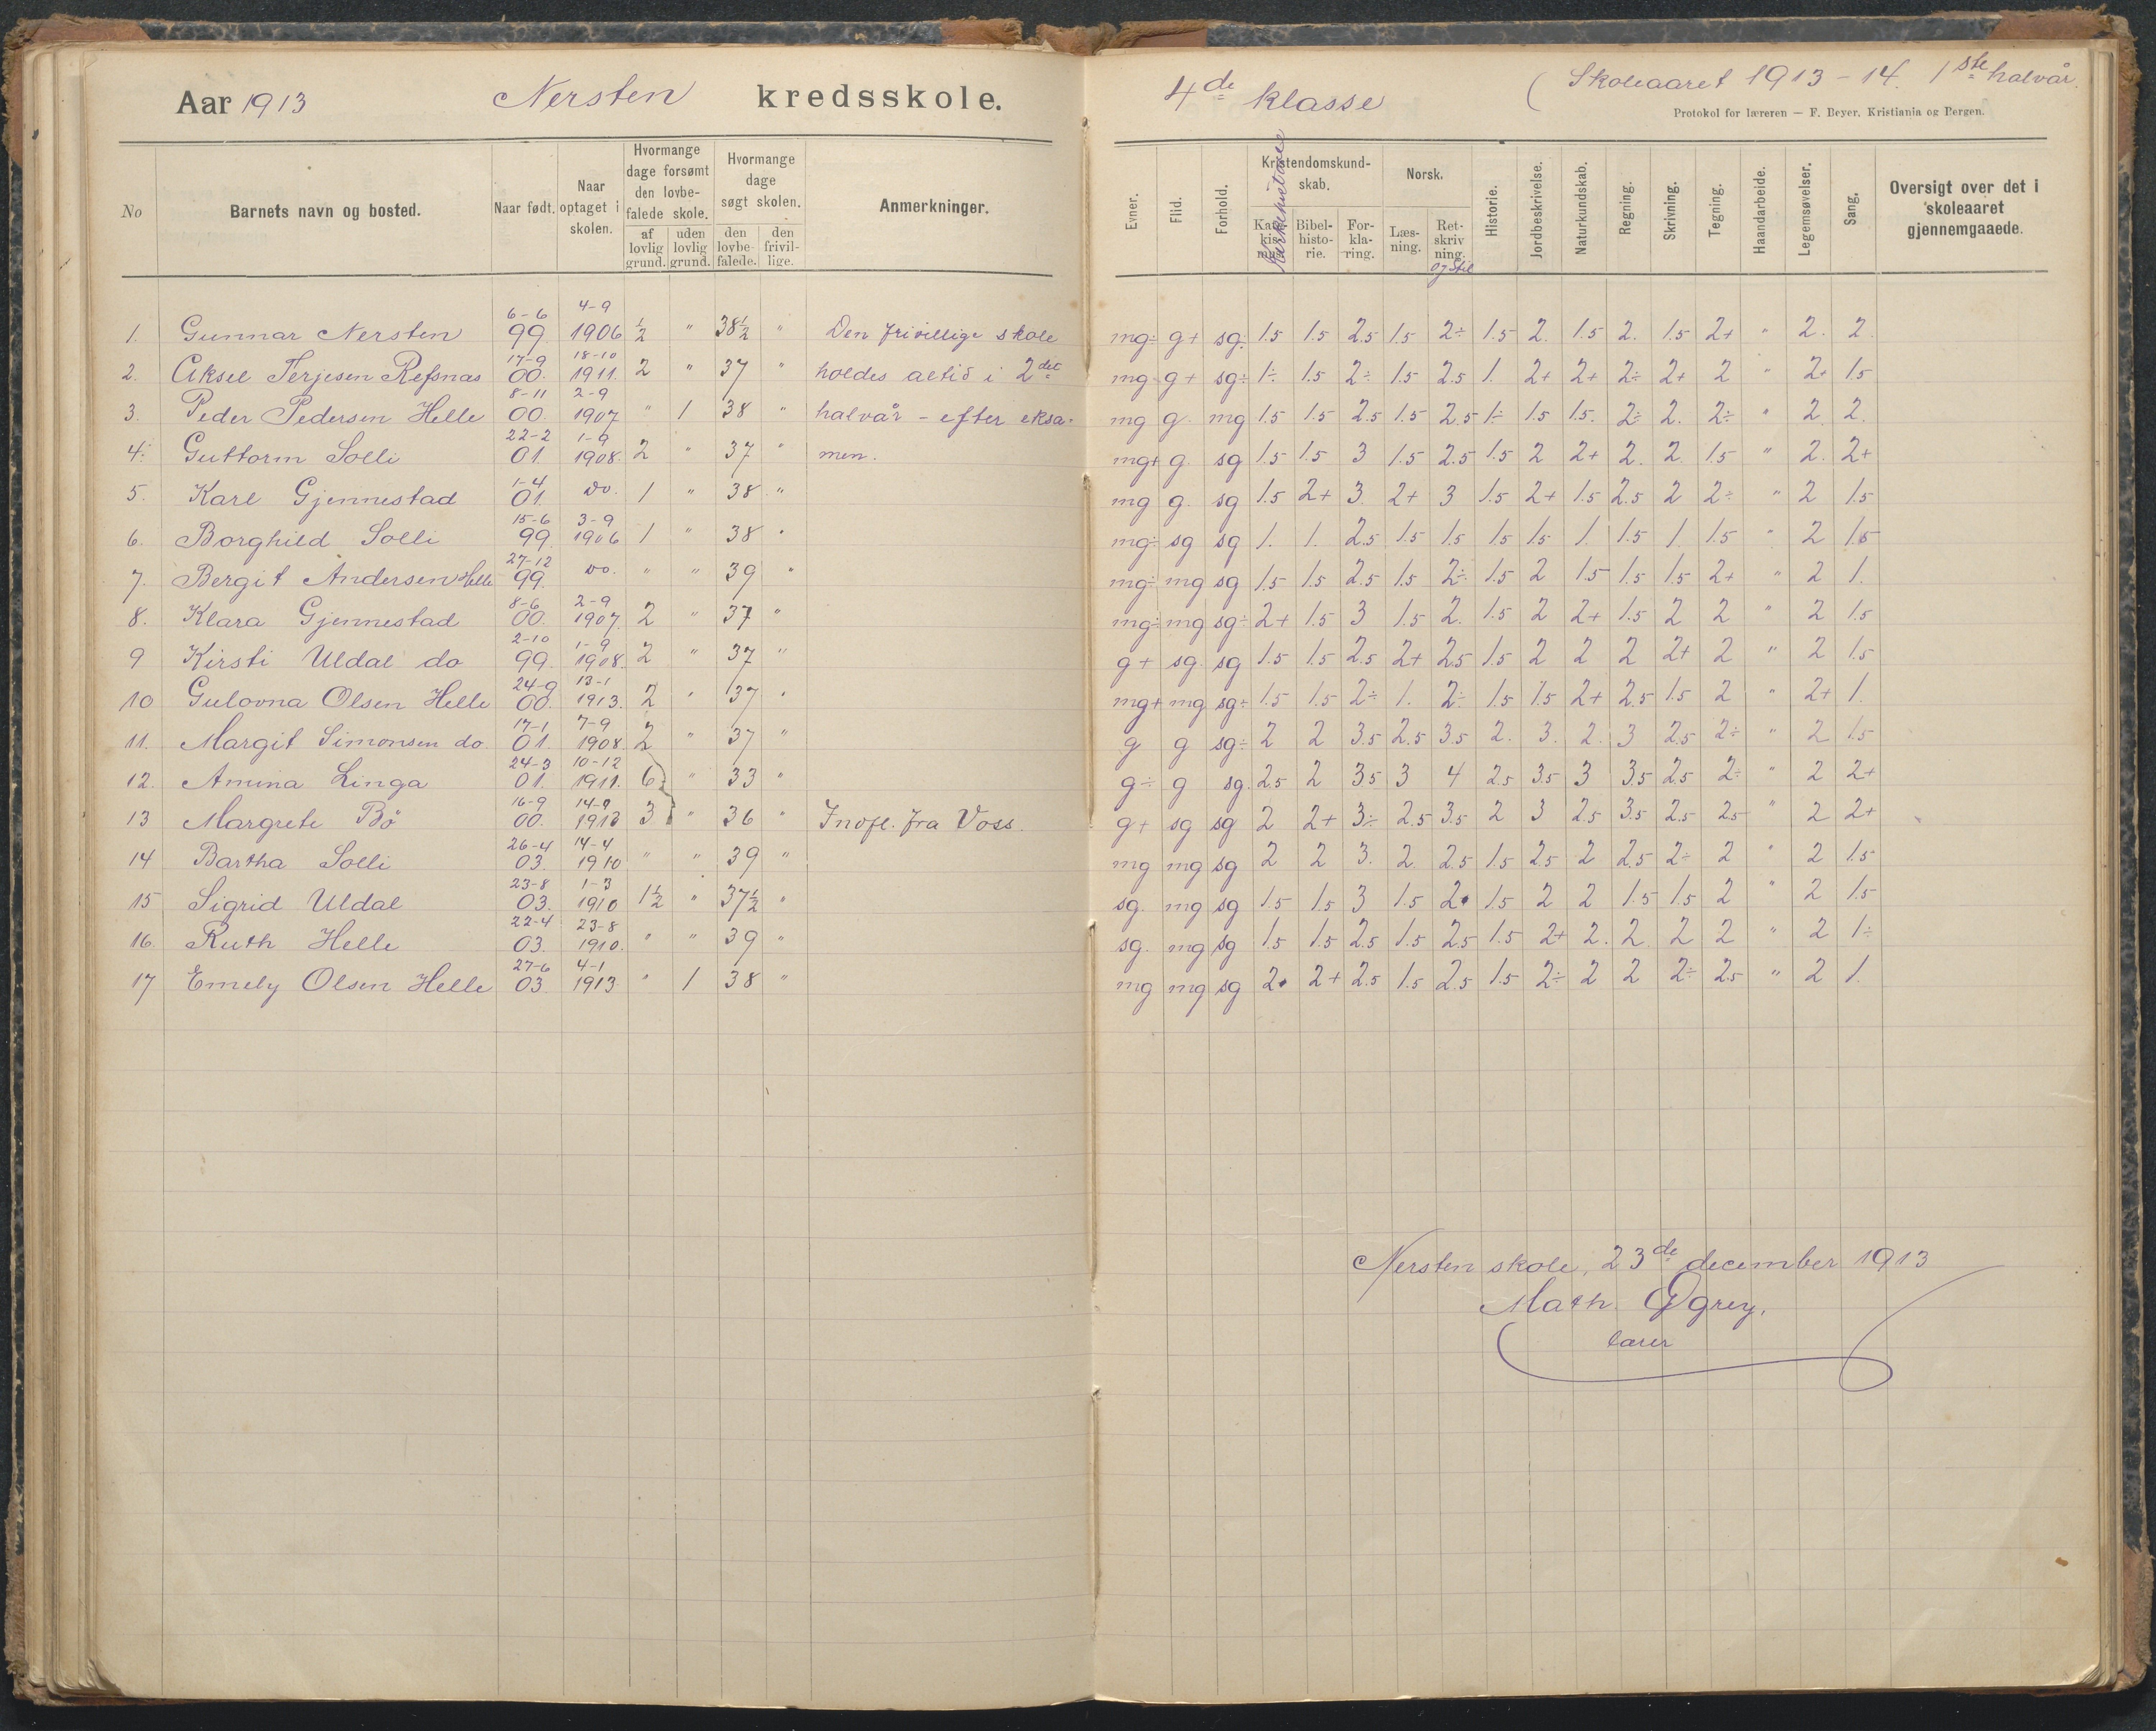 Aar 1913 Nersten kredsskole.
4de klasse (Skoleaaret 1913-14. 1ste halvår.
Protokol for læreren — F. Beyer. Kristiania og Bergen.
No Barnets navn og bosted. Naar født. Naar optaget i skolen. Hvormange dage forsømt den lovbefalede skole. af lovlig grund. uden lovlig grund. Hvormange dage søgt skolen. den lovbefalede. den frivillige. Anmerkninger.
Evner. Flid. Forhold. Kristendomskundskab. Katekismus. Kirkehistorie Bibelhistorie. Forklaring. Norsk. Læsning. Retskrivning. og Stil Historie. Jordbeskrivelse. Naturkundskab. Regning. Skrivning. Tegning. Haandarbeide. Legemsøvelser. Sang. Oversigt over det i skoleaaret gjennemgaaede.
1. Gunnar Nersten 6-6 99 4-9 1906 ½ " 38½ " Den frivillige skole mg÷ g+ sg. 1.5 1.5 2.5 1.5 2÷ 1.5 2. 1.5 2. 1.5 2+ " 2. 2.
2. Aksel Terjesen Refsnæs 17-9 00. 18-10 1911. 2 " 37 " holdes altid i 2det mg g+ sg÷ 1÷ 1.5 2÷ 1.5 2.5 1. 2+ 2+ 2÷ 2+ 2 " 2+ 1.5
3. Peder Pedersen Helle 8-11 00. 2-9 1907 " 1 38 " halvår - efter eksa- mg g. mg 1.5 1.5 2.5 1.5 2.5 1÷ 1.5 1.5. 2÷ 2. 2÷ " 2. 2.
4. Guttorm Solli 22-2 01. 1-9 1908. 2 " 37 " men. mg+ g. sg 1.5 1.5 3 1.5 2.5 1.5 2 2+ 2. 2. 1.5 " 2. 2+
5. Karl Gjennestad 1-4 01. do. 1 " 38 " mg g. sg 1.5 2+ 3. 2+ 3 1.5 2+ 1.5 2.5 2 2÷ " 2 1.5
6. Borghild Solli 15-6 99. 3-9 1906 1 " 38 " mg÷ sg sg 1. 1. 2.5 1.5 1.5 1.5 1.5 1. 1.5 1. 1.5 " 2 1.5
7. Bergit Andersen Helle 27-12 99. do. " " 39 " mg÷ mg sg 1.5 1.5 2.5 1.5 2÷ 1.5 2 1.5 1.5 1.5 2+ " 2 1.
8. Klara Gjennestad 8-6 00. 2-9 1907. 2 " 37 " mg÷ mg sg÷ 2+ 1.5 3 1.5 2. 1.5 2 2+ 1.5 2 2 " 2 1.5
9 Kirsti Uldal do 2-10 99. 1-9 1908. 2 " 37 " g+ sg. sg 1.5 1.5 2.5 2+ 2.5 1.5 2 2 2 2+ 2 " 2 1.5
10 Gulovna Olsen Helle 24-9 00. 13-1 1913. 2 " 37 " mg+ mg sg÷ 1.5 1.5 2÷ 1. 2÷ 1.5 1.5 2+ 2.5 1.5 2 " 2+ 1.
11. Margit Simonsen do. 17-1 01. 7-9 1908. 2 " 37 " g g sg÷ 2 2 3.5 2.5 3.5 2. 3. 2. 3 2.5 2÷ " 2 1.5
12. Amina Linga 24-3 01. 10-12 1911. 6 " 33 " g÷ g sg. 2.5 2 3.5 3 4 2.5 3.5 3 3.5 2.5 2÷ " 2 2+
13 Margrete Bö 16-9 00. 14-9 1913 3 " 36 " Indfl. fra Voss. g+ sg sg 2 2+ 3÷ 2.5 3.5 2 3 2.5 3.5 2.5 2.5 " 2 2+
14 Bartha Solli 26-4 03. 14-4 1910 " " 39 " mg mg sg 2 2 3. 2. 2.5 1.5 2.5 2 2.5 2÷ 2 " 2 1.5
15 Sigrid Uldal 23-8 03. 1-3 1910 1½ " 37½ " sg. mg sg 1.5 1.5 3 1.5 2. 1.5 2 2 1.5 1.5 2 " 2 1.5
16. Ruth Helle 22-4 03. 23-8 1910. " " 39 " sg. mg sg 1.5 1.5 2.5 1.5 2.5 1.5 2+ 2. 2. 2 2 " 2 1÷
17 Emely Olsen Helle 27-6 03. 4-1 1913. " 1 38 " mg mg sg 2. 2+ 2.5 1.5 2.5 1.5 2÷ 2 2 2÷ 2.5 " 2 1.
Nersten skole, 23de december 1913
Math. Øgrey.
lærer